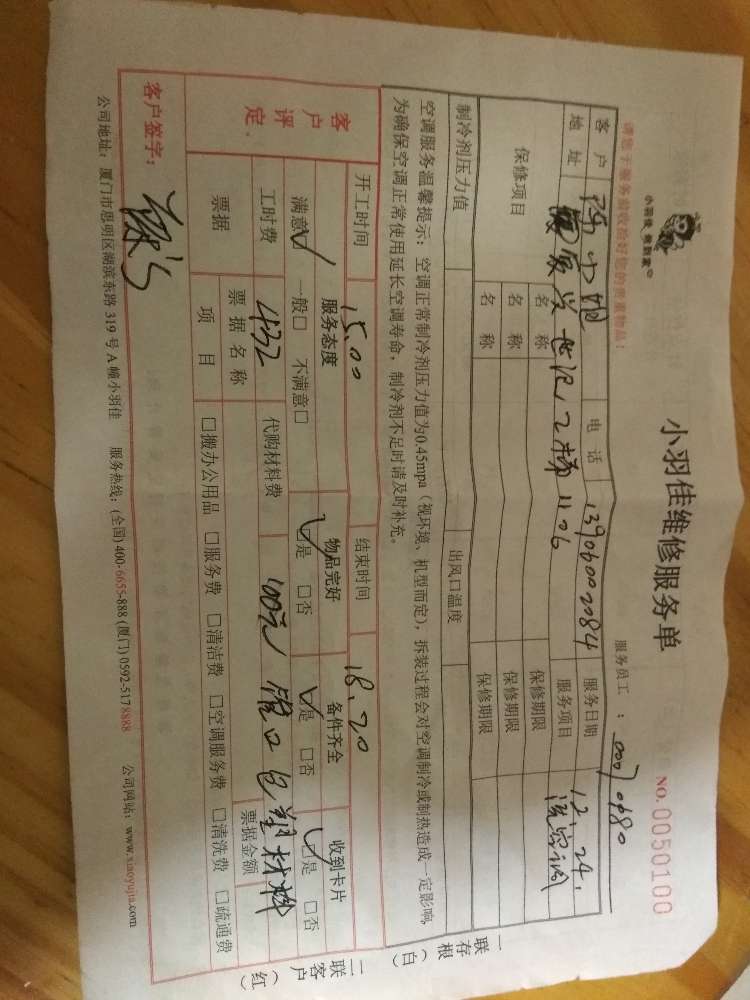 小羽佳 焦帮家
小羽佳维修服务单
NO. 0050100
请您于服务验收给好您的贵重物品!
服务员工:
客户 小姐 电话 13906002084 服务日期 12.24.
地址 世纪 乙梯 1106 服务项目 洗空调
保修项目 名称 保修期限
名称 保修期限
名称 保修期限
制冷剂压力值 出风口温度
空调服务温馨提示:空调正常制冷剂压力值为0.45mpa(视环境、机型而定),拆装过程会对空调制冷或制热造成一定影响,
为确保空调正常使用延长空调寿命,制冷剂不足时请及时补充。
开工时间 15.00 结束时间 18.20
客户评定. 服务态度 物品完好 备件齐全 收到卡片
满意☑ 一般□ 不满意□ ☑是 □否 ☑是 □否 ☑是 □否
工时费 432 代购材料费 100元 管口包塑材料
票据 票据名称 票据金额
项目 □搬办公用品 □服务费 □清洁费 □空调服务费 □清洗费 □疏通费
客户签字:
公司地址:厦门市思明区湖滨东路 319 号 A 幢小羽佳 服务热线:(全国) 400-6655-888 (厦门) 0592-5178888 公司网站:www.xiaoyujia.com
一联存根(白)
二联客户(红)